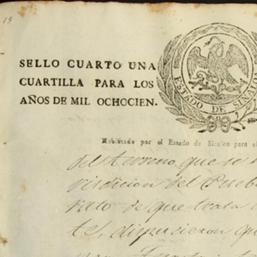 SELLO CUARTO UNA
CUARTILLA PARA LOS
AÑOS DE MIL OCHOCIEN.
ESTADO DE SINALOA
Habilitado por el Estado de Sinaloa para el
del terreno que se
del Pueb
de que trata
dispusieron que